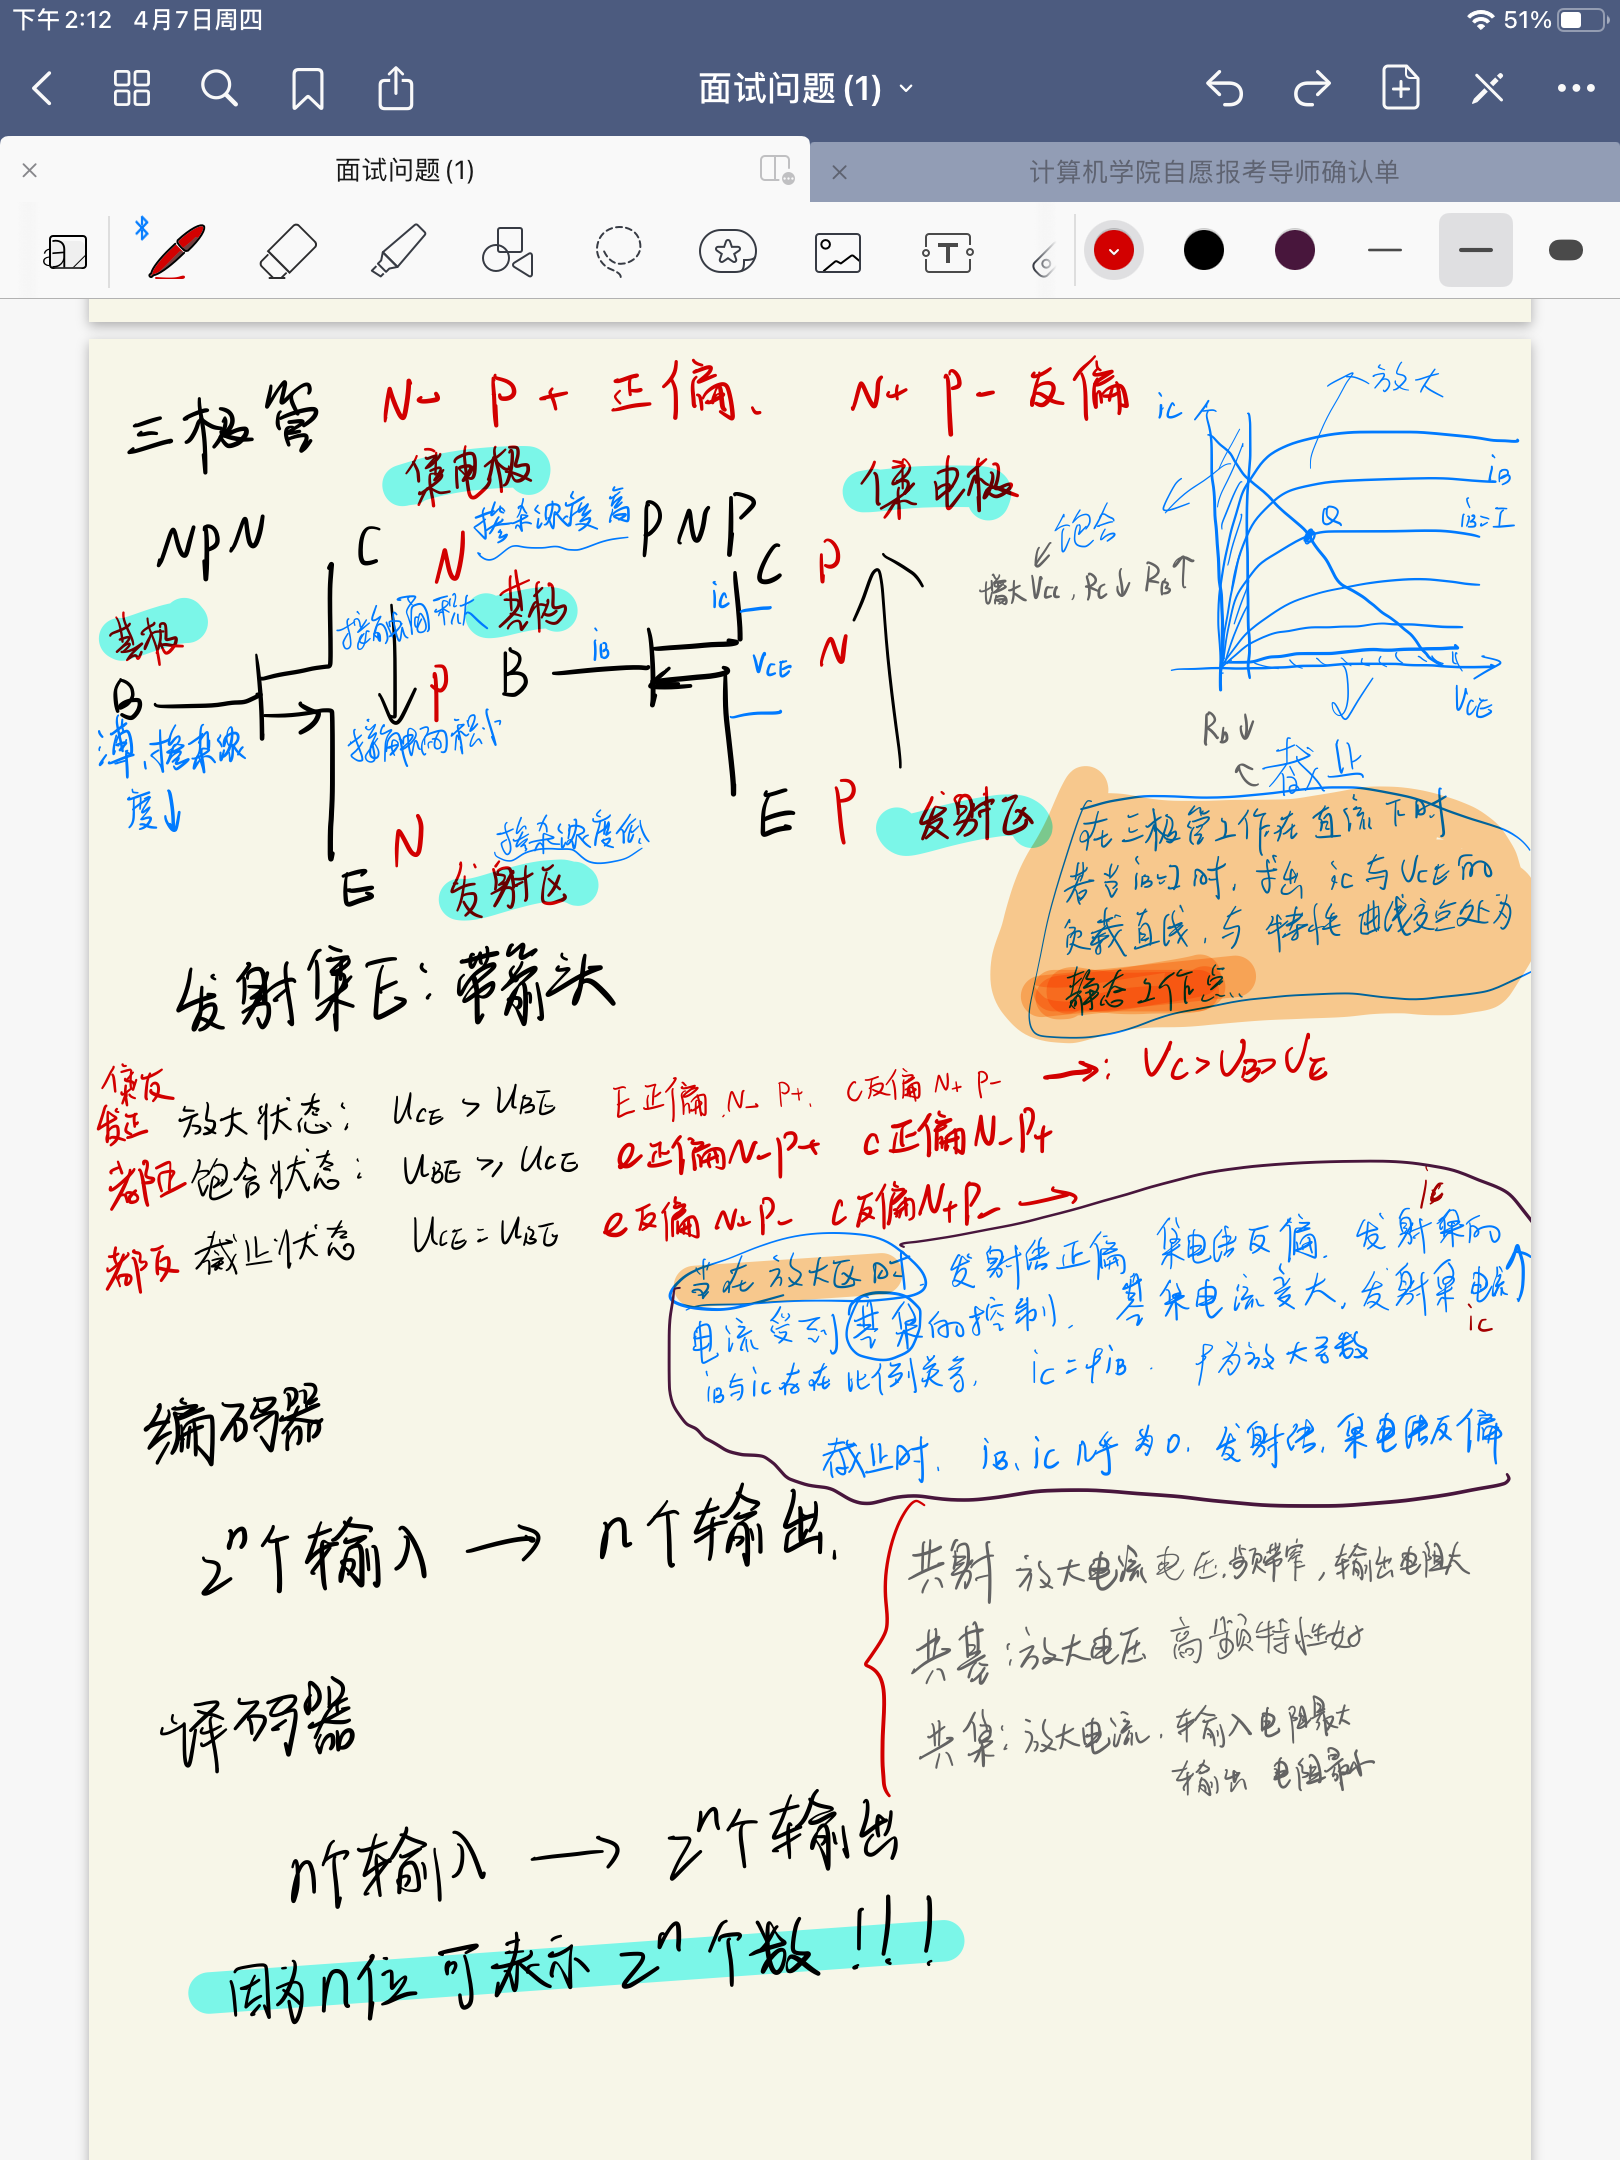 下午2:12 4月7日周四
51%
面试问题 (1)
面试问题 (1)
计算机学院自愿报考导师确认单
三极管
N- P+ 正偏、
N+ P- 反偏
集电极
集电极
NPN
C
N
掺杂浓度高
PNP
C
P
基极
接触面积大
基极
ic
B
P
B
iB
VCE
N
薄、掺杂浓
度↓
接触面积小
N
掺杂浓度低
E
P
发射区
E
发射区
ic
放大
iB
iB=I
Q
饱合
增大Vcc,Rc↓ RB↑
VCE
Rb↓
截止
在三极管工作在直流下时
若当iB=I时,求出 ic与VCE的
负载直线,与特性曲线交点处为
静态工作点.
发射集E:带箭头
集反
发正
放大状态: UCE > UBE E正偏.N- P+. C反偏 N+ P- →: VC>VB>VE
都正 饱合状态: UBE ≥ UCE e正偏N-P+ c正偏N-P+
都反 截止状态 UCE=UBE e反偏 N+P- c反偏N+P- →
ic
当在放大区时,发射结正偏 集电结反偏.发射集的
电流受到基集的控制. 基集电流变大,发射集电流↑
ic
iB与ic存在比例关系, ic=βiB. β为放大系数
截止时. iB、ic几乎为0.发射结,集电结反偏
编码器
2ⁿ个输入 → n个输出.
共射 放大电流电压.频带窄,输出电阻大
共基:放大电压 高频特性好
共集:放大电流.输入电阻最大
输出电阻最小
译码器
n个输入 → 2ⁿ个输出
因为n位可表示2ⁿ个数!!!